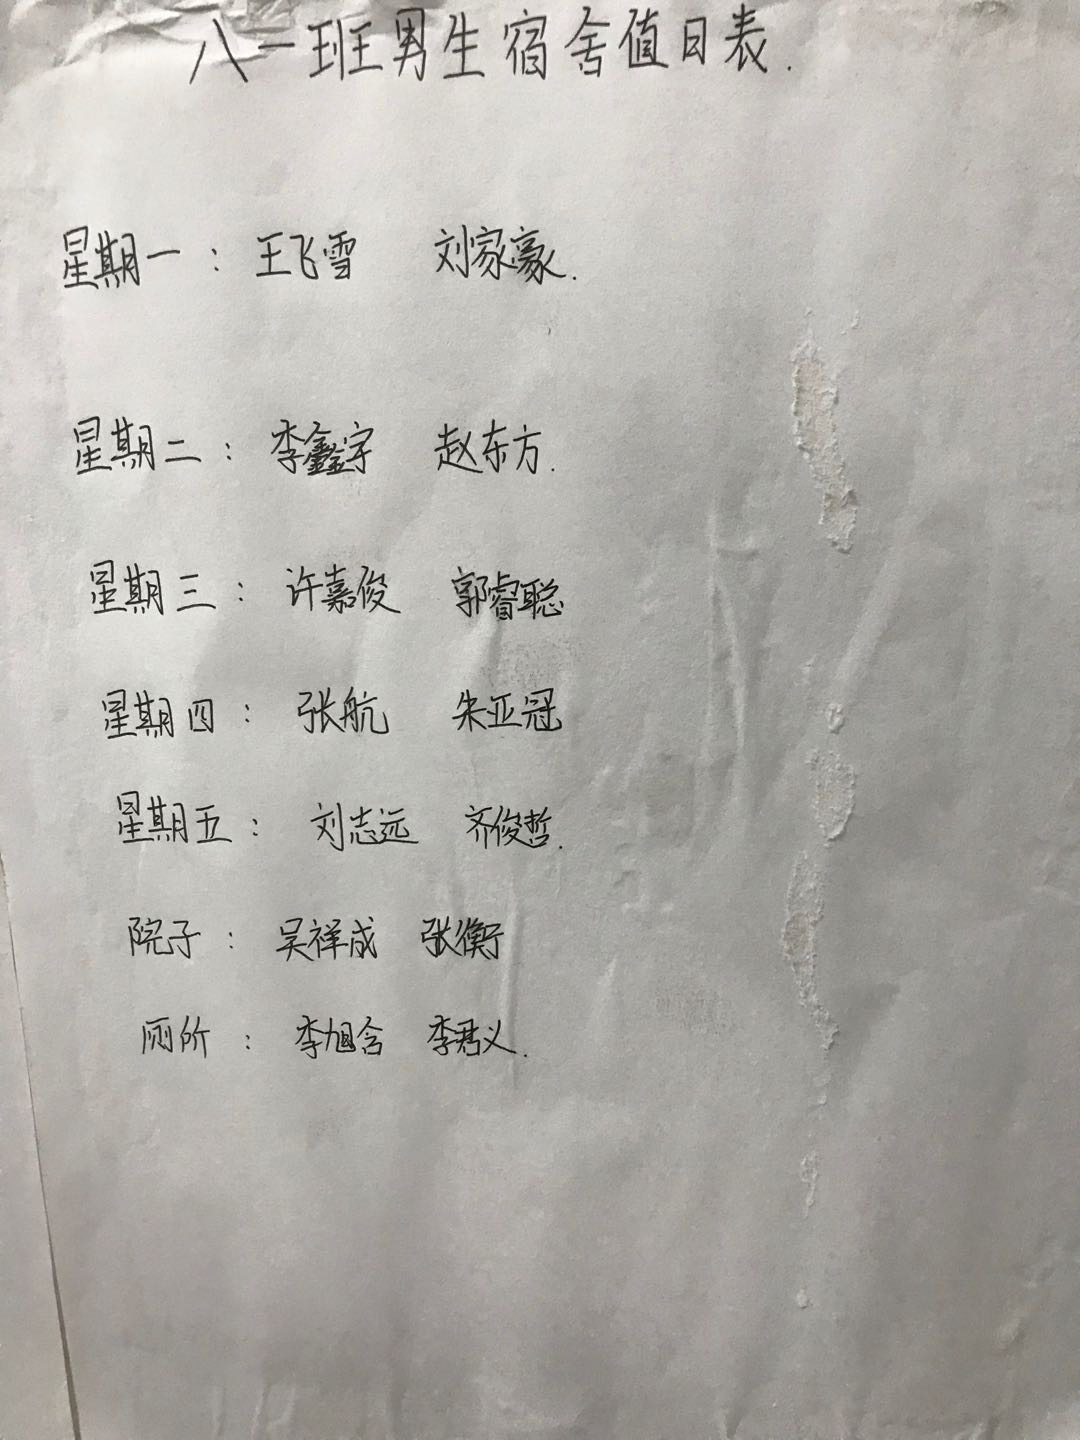 八一班男生宿舍值日表.
星期一：王飞雪 刘家豪.
星期二：李鑫宇 赵东方.
星期三：许嘉俊 郭睿聪
星期四：张航 朱亚冠
星期五：刘志远 齐俊哲.
院子：吴祥成 张衡
厕所：李旭含 李君义.